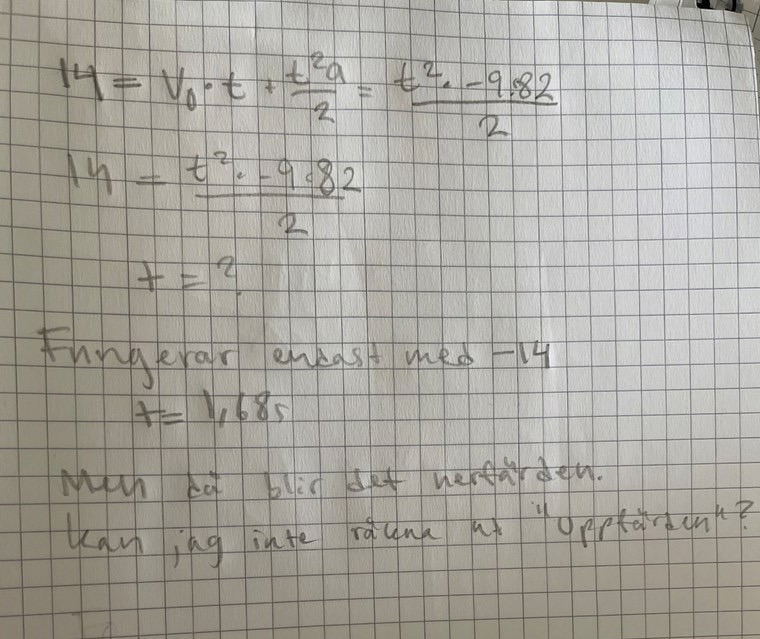 14 = V₀·t + t²a/2 = t²·-9.82/2
14 = t²·-9.82/2
t = ?
Fungerar endast med -14
t = 1,68s
Men då blir det nerfärden.
Kan jag inte räkna ut "Uppfärden"?